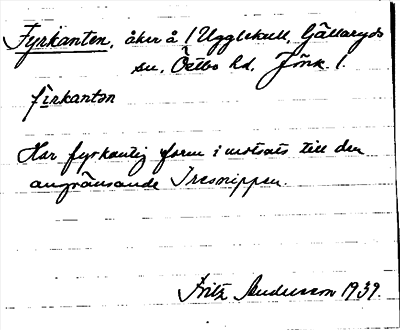 Fyrkanten, åker å 1 Ugglekull, Gällaryds
sn, Östbo hd, Jönk. l.
firkantan
Har fyrkantig form i motsats till den
angränsande Tresnippen.
Fritz Andersson 1939.